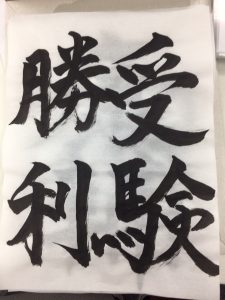 受験
勝利